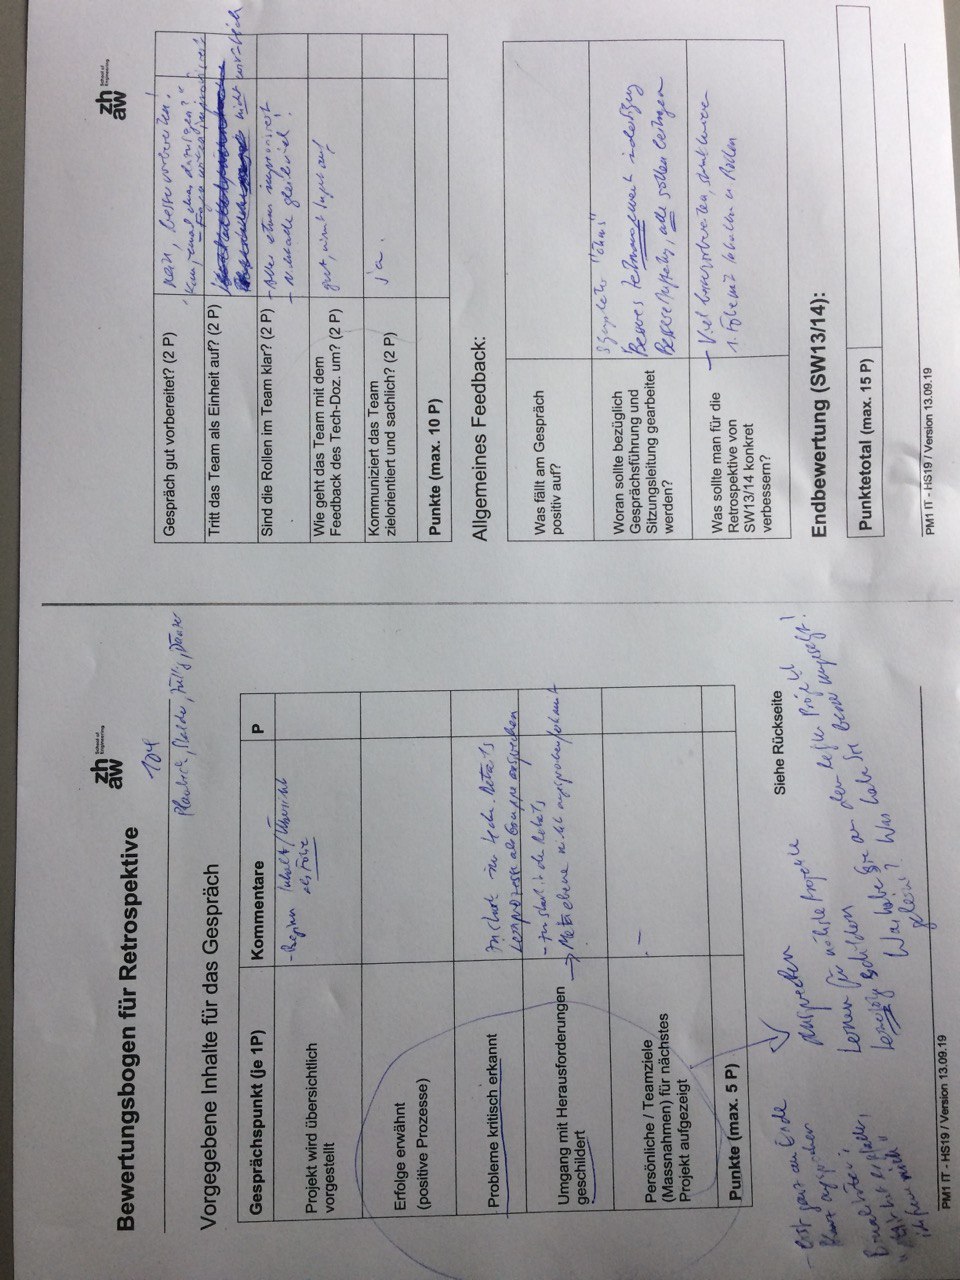 zh
aw
School of
Engineering
Bewertungsbogen für Retrospektive
104
Vorgegebene Inhalte für das Gespräch
Gesprächspunkt (je 1P)
Kommentare
P
Projekt wird übersichtlich
vorgestellt
- Beginn Inhalt/Übersicht
als Folie
Erfolge erwähnt
(positive Prozesse)
Probleme kritisch erkannt
zu stark in techn. Details
Lernprozesse als Gruppe ansprechen
Umgang mit Herausforderungen
geschildert
- zu stark in den Details
Metaebene nicht angesprochen/erkannt
Persönliche / Teamziele
(Massnahmen) für nächstes
Projekt aufgezeigt
-
Punkte (max. 5 P)
Siehe Rückseite
- erst ganz am Ende
kurz angesprochen
ansprechen
Lernen für nächste Projekte
Lernerfolge schildern
Was habe Sie an dem letzten Projekt
gelernt? Was habe Sie besser umgesetzt!
"
ich freue mich"
PM1 IT - HS19 / Version 13.09.19
zh
aw
School of
Engineering
Gespräch gut vorbereitet? (2 P)
nein, besser vorbereiten!
"Kann jemand etwas dazu sagen?"
- Fragen wirken improvisiert
Tritt das Team als Einheit auf? (2 P)
nicht wirklich
Sind die Rollen im Team klar? (2 P)
- Alles etwas improvisiert
gleich!
Wie geht das Team mit dem
Feedback des Tech-Doz. um? (2 P)
gut, nimmt Input auf
Kommuniziert das Team
zielorientiert und sachlich? (2 P)
ja.
Punkte (max. 10 P)
Allgemeines Feedback:
Was fällt am Gespräch
positiv auf?
Woran sollte bezüglich
Gesprächsführung und
Sitzungsleitung gearbeitet
werden?
"ähms"
Besseres Zeitmanagement
Bessere Aufteilung, alle sollen beitragen
Was sollte man für die
Retrospektive von
SW13/14 konkret
verbessern?
- Viel besser vorbereiten, strukturieren
1. Folie mit Inhalten u. Rollen
Endbewertung (SW13/14):
Punktetotal (max. 15 P)
PM1 IT - HS19 / Version 13.09.19